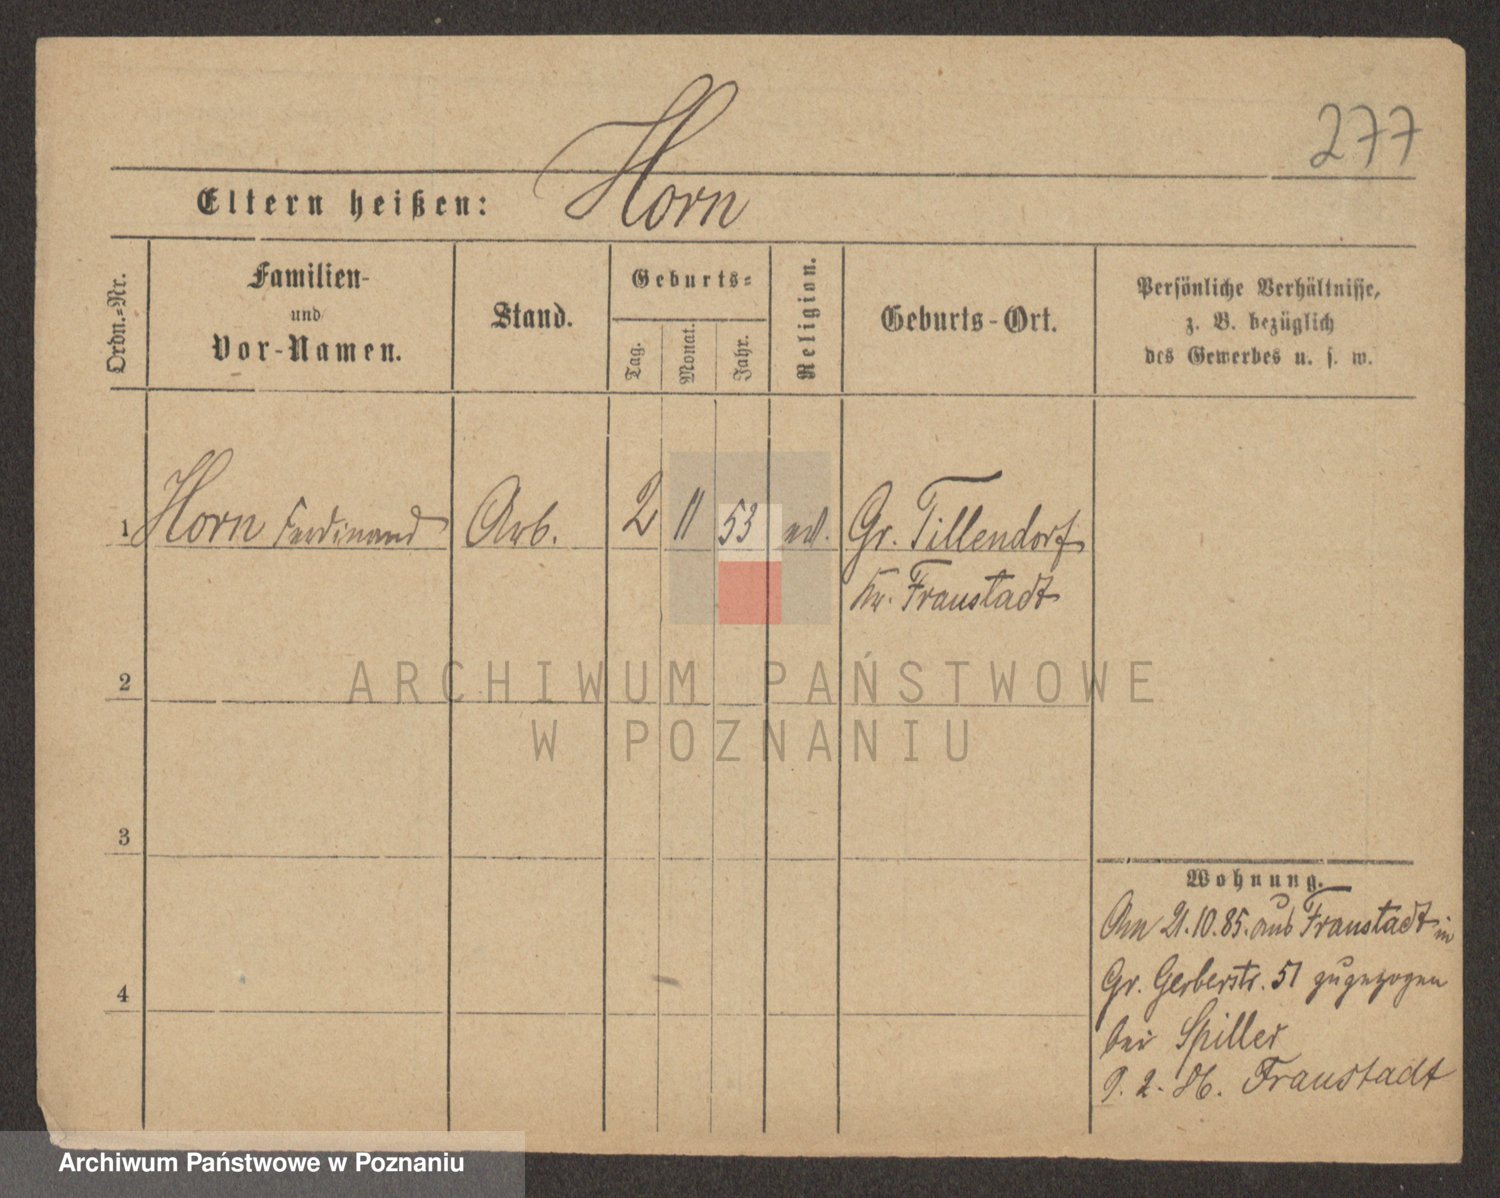 277
Horn
Eltern heißen:
Ordn.-Nr.
Familien-
und
Vor-Namen.
Stand.
Geburts-
Tag.
Monat.
Jahr.
Religion.
Geburts-Ort.
Persönliche Verhältnisse,
z. B. bezüglich
des Gewerbes u. s. w.
1 Horn Ferdinand Arb. 2 11 53 ev. Gr. Tillendorf
Kr. Fraustadt
2
ARCHIWUM PAŃSTWOWE
W POZNANIU
3
4
Wohnung.
Am 21.10.85. aus Fraustadt in
Gr. Gerberstr. 51 zugezogen
bei Spiller
Fraustadt
Archiwum Państwowe w Poznaniu